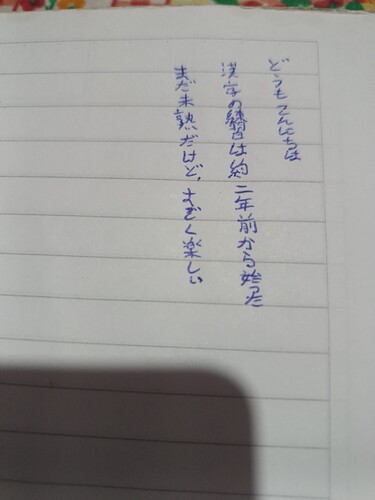 どうもこんにちは
漢字の練習は約二年前から始った
まだ未熟だけど、すごく楽しい